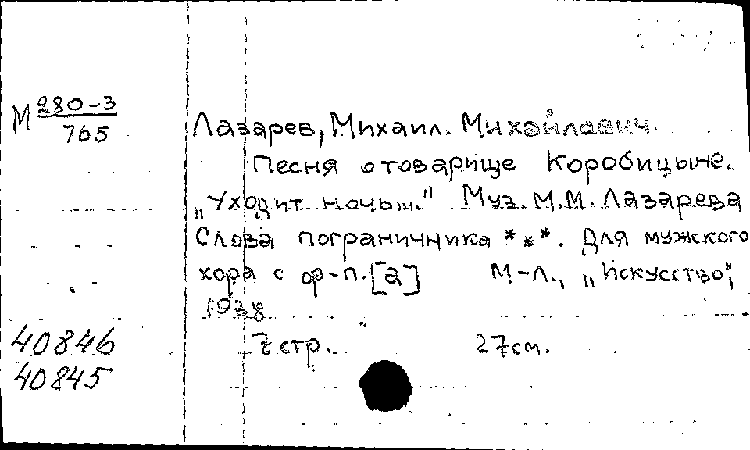 М 280-3
765
Лазарев, Михаил. Михайлович.
Песня о товарище Коробицыне.
„Уходит ночь..." Муз. М.М. Лазарева
Слова пограничника ***. Для мужского
хора с ф-п. [а] М-Л., „Искусство",
1938
7 стр. 27 см.
40846
40845